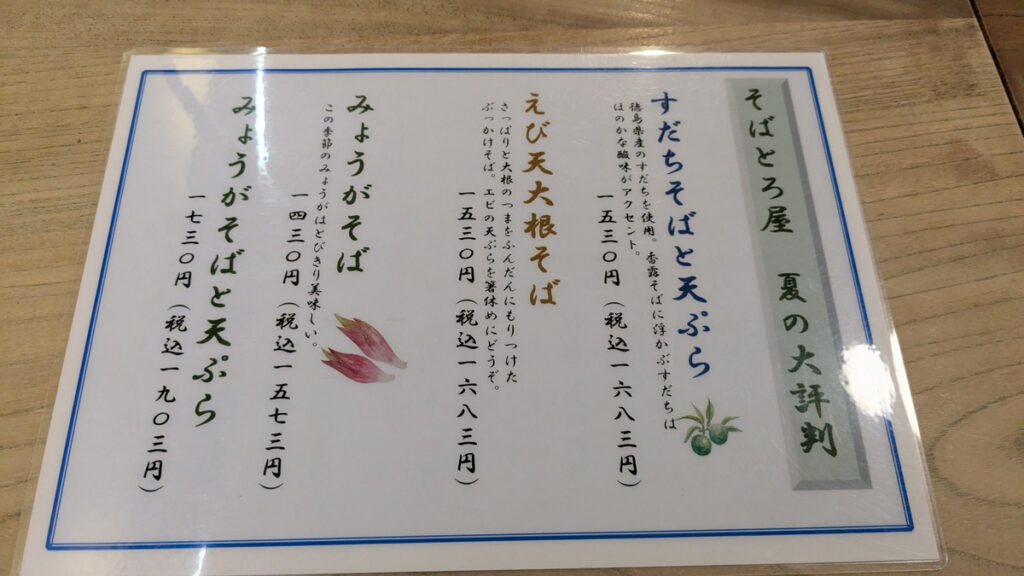 そばとろ屋 夏の大評判
すだちそばと天ぷら
徳島県産のすだちを使用。香露そばに浮かぶすだちは
ほのかな酸味がアクセント。
一五三〇円（税込一六八三円）
えび天大根そば
さっぱりと大根のつまをふんだんにもりつけた
ぶっかけそば。エビの天ぷらを箸休めにどうぞ。
一五三〇円（税込一六八三円）
みょうがそば
この季節のみょうがはとびきり美味しい。
一四三〇円（税込一五七三円）
みょうがそばと天ぷら
一七三〇円（税込一九〇三円）